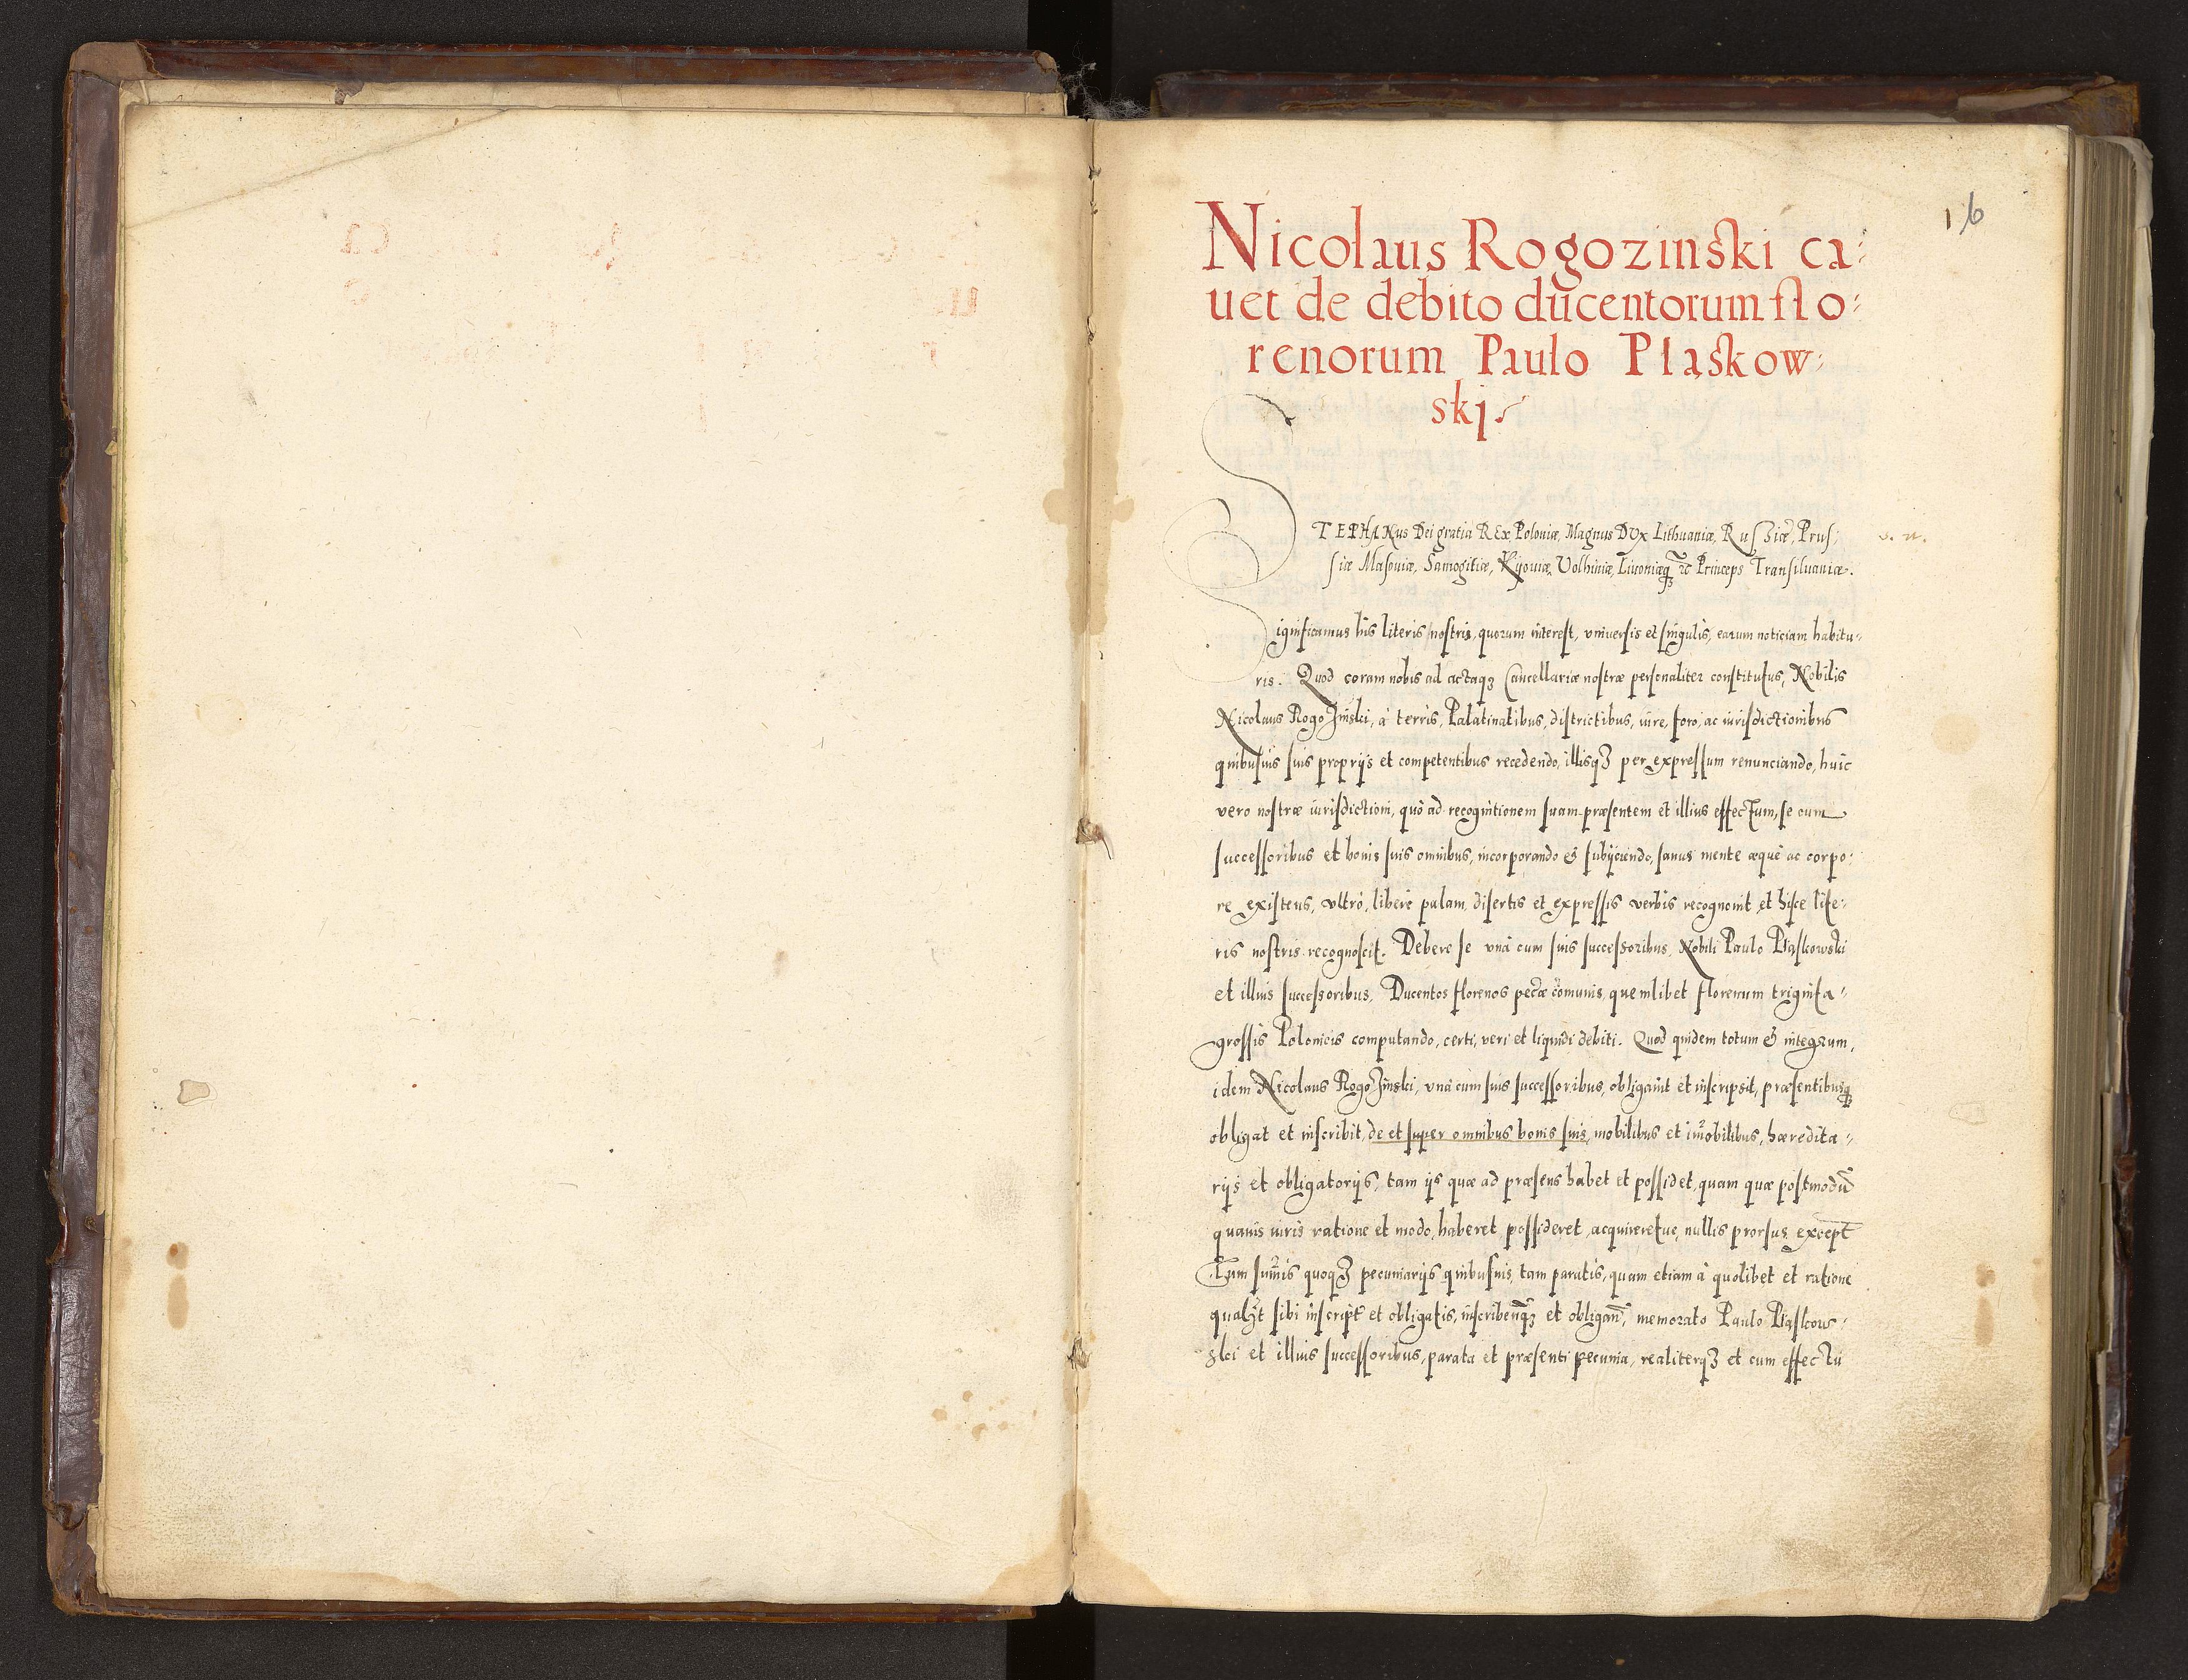 1 6
Nicolaus Rogozinski ca:
uet de debito ducentorum flo:
renorum Paulo Pląskow:
skj.
STEPHANus Dei gratia REx Poloniæ, Magnus DVx Lithuaniæ, Russiæ, Prus:
siæ Masouiæ, Samogitiæ, Kijouiæ, Volhiniæ, Liuoniæq₃ &c Princeps Transiluaniæ.
Significamus his literis nostris, quorum interest, vniuersis et singulis, earum noticiam habitu:
ris. Quod coram nobis ad actaq₃ Cancellariæ nostræ personaliter constitutus, Nobilis
Nicolaus Rogozinski, à terris, Palatinatibus, districtibus, iure, foro, ac iurisdictionibus
quibusuis suis proprijs et competentibus recedendo, illisq₃ per expressum renunciando, huic
vero nostræ iurisdictioni, quò ad recognitionem suam præsentem et illius effectum, se cum
successoribus et bonis suis omnibus, incorporando & subijciendo, sanus mente æquè ac corpo:
re existens, vltrò, liberè palam, disertis et expressis verbis recognouit et hisce lite:
ris nostris recognoscit. Debere se vnà cum suis successoribus, Nobili Paulo Pląskowski
et illius successoribus, Ducentos florenos pecæ cõmunis, quemlibet florenum triginta
grossis Polonicis computando, certi, veri et liquidi debiti. Quod quidem totum & integrum,
idem Nicolaus Rogozinski, vnà cum suis successoribus, obligauit et inscripsit, præsentibusq₃
obligat et inscribit, de et super omnibus bonis suis, mobilibus et im̃obilibus, hæredita:
rijs et obligatorijs, tam ijs quæ ad præsens habet et possidet, quam quæ postmodũ
quauis iuris ratione et modo, haberet, possideret, acquireretue, nullis prorsus except̃
Tum sum̃is quoq₃ pecuniarijs quibusuis, tam paratis, quam etiam à quolibet et ratione
qualit̃ sibi inscript̃ et obligatis, inscribenq̃₃ et obligan̄, memorato Paulo Pląskow:
ski et illius successoribus, parata et præsenti pecunia, realiterq₃ et cum effectu